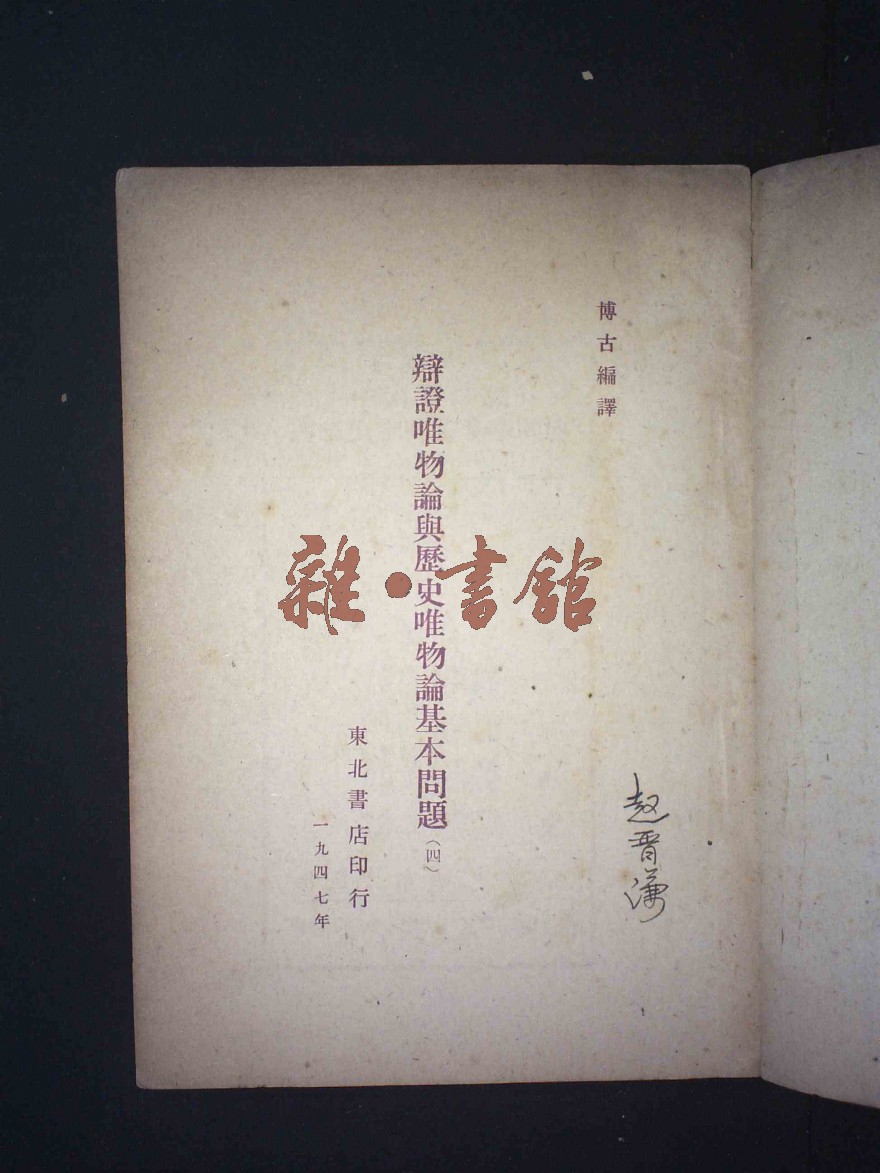 博古編譯
辯證唯物論與歷史唯物論基本問題(四)
東北書店印行
一九四七年
趙晋谦
雜·書館